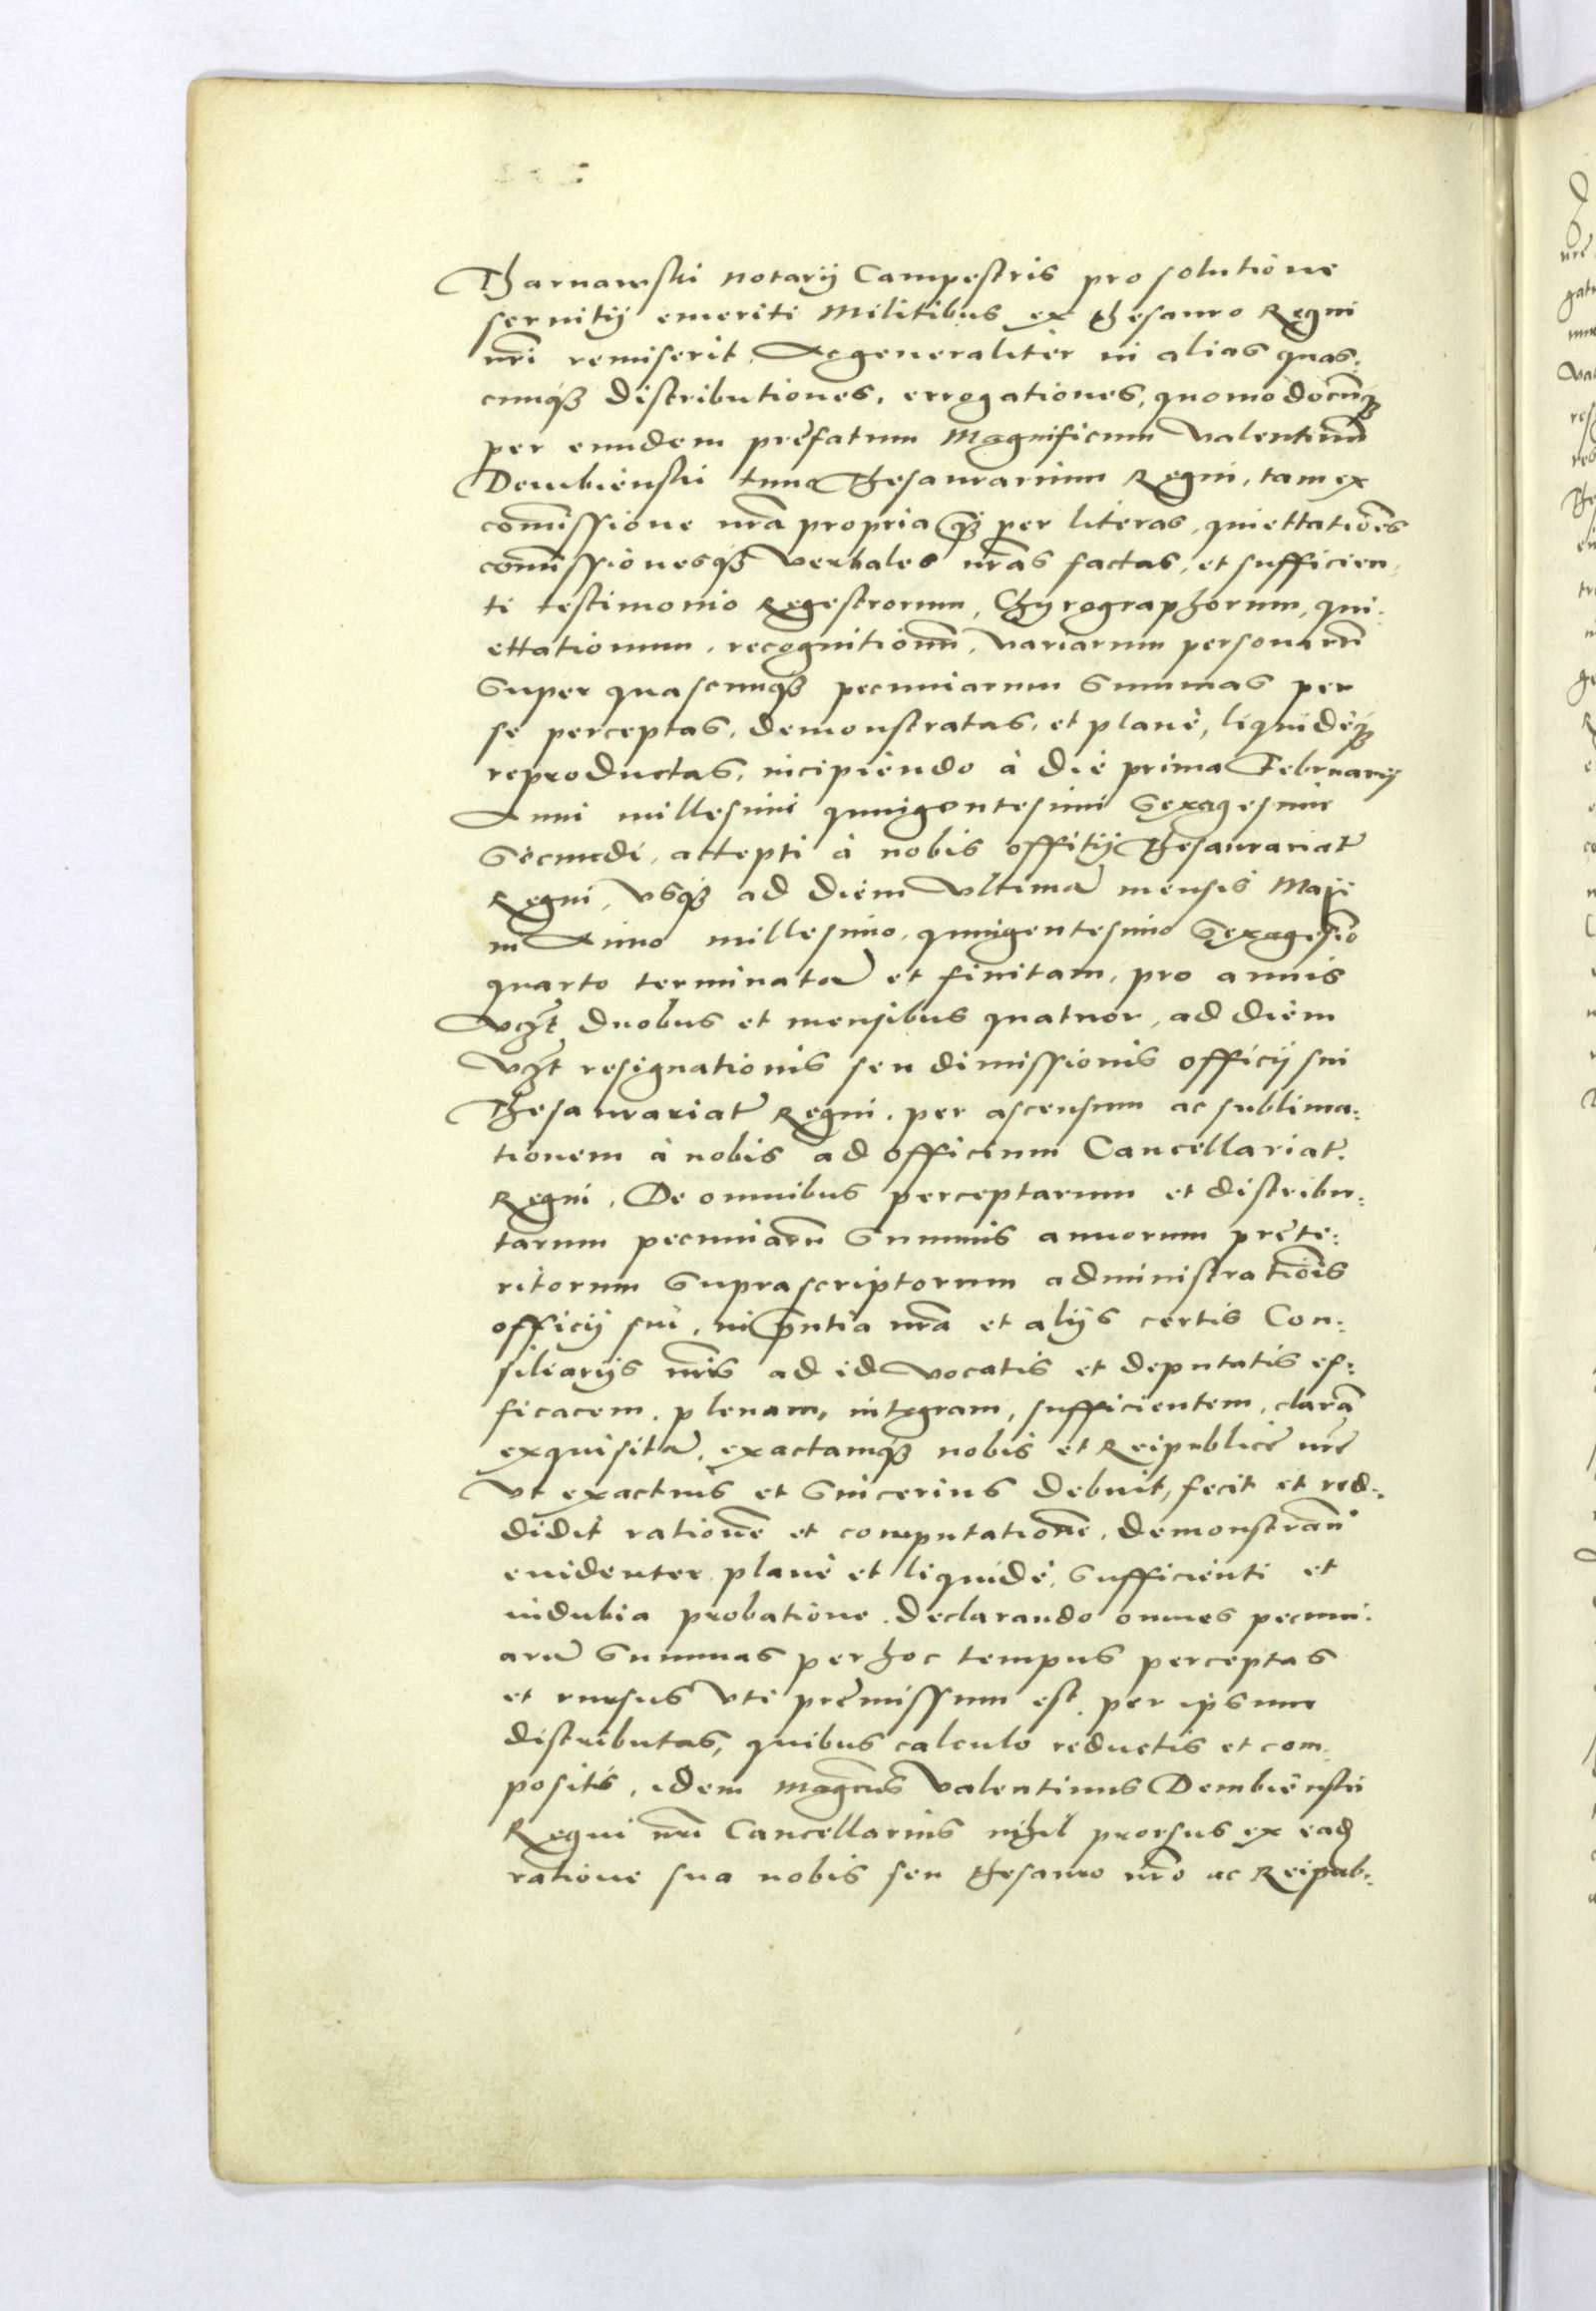 Tharnawski notarij Campestris pro solutione
seruitij emeriti Militibus ex thesauro Regni
nr̃i remiserit. Ac generaliter in alias quas:
cunq₃ distributiones, errogationes, quomodocũq₃
per eundem prefatum Magnificum Valentinũ
Dembienski tunc Thesaurarium Regni, tam ex
com̃issione nr̃a propria q̃₃ per literas, quiettatiões
com̃issionesq₃ verbales nr̃as factas, et sufficien,
ti testimonio Regestrorum, Chyrographorum, qui:
ettationum, recognitionũ, variarum personarũ
Super quascunq₃ pecuniarum Summas per
se perceptas, demonstratas, et planè, liquidèq₃
reproductas, incipiendo à die prima Februarij
Anni millesimi quingentesimi Sexagesimi
Secundi, accepti à nobis offitij Thesaurariatꝰ
Regni, vsq₃ ad diem vltimã mensis Maji
in Anno millesimo, quingentesimo Sexagesĩo
quarto terminatã et finitam, pro annis
vcz̃t duobus et mensibus quatuor, ad diem
vcz̃t resignationis seu dimissionis officij sui
Thesaurariatꝰ Regni, per ascensum ac sublima:
tionem à nobis ad officium Cancellariatꝰ
Regni. De omnibus perceptarum et distribu:
tarum pecuniarũ Summis annorum prete:
ritorum Suprascriptorum administratiõis
officij sui, in p̃ntia nr̃a et alijs certis Con:
siliarijs nr̃is ad id vocatis et deputatis ef:
ficacem, plenam, integram, sufficientem, clarã
exquisitã, exactamq₃ nobis et Reipublicę nr̃ę
vt exactius et Sincerius debuit, fecit et red:
didit rationẽ et computationẽ, demonstrañ
euidenter planè et liquidè, Sufficienti et
indubia probatione. Declarando omnes pecuni:
arũ Summas per hoc tempus perceptas
et rursus vti premissum est, per ipsum
distributas, quibus calculo reductis et com:
positis, idem Mag̃cus Valentinus Dembienski
Regni nr̃i Cancellarius nihil prorsus ex eadẽ
ratione sua nobis seu thesauro nr̃o ac Reipub: